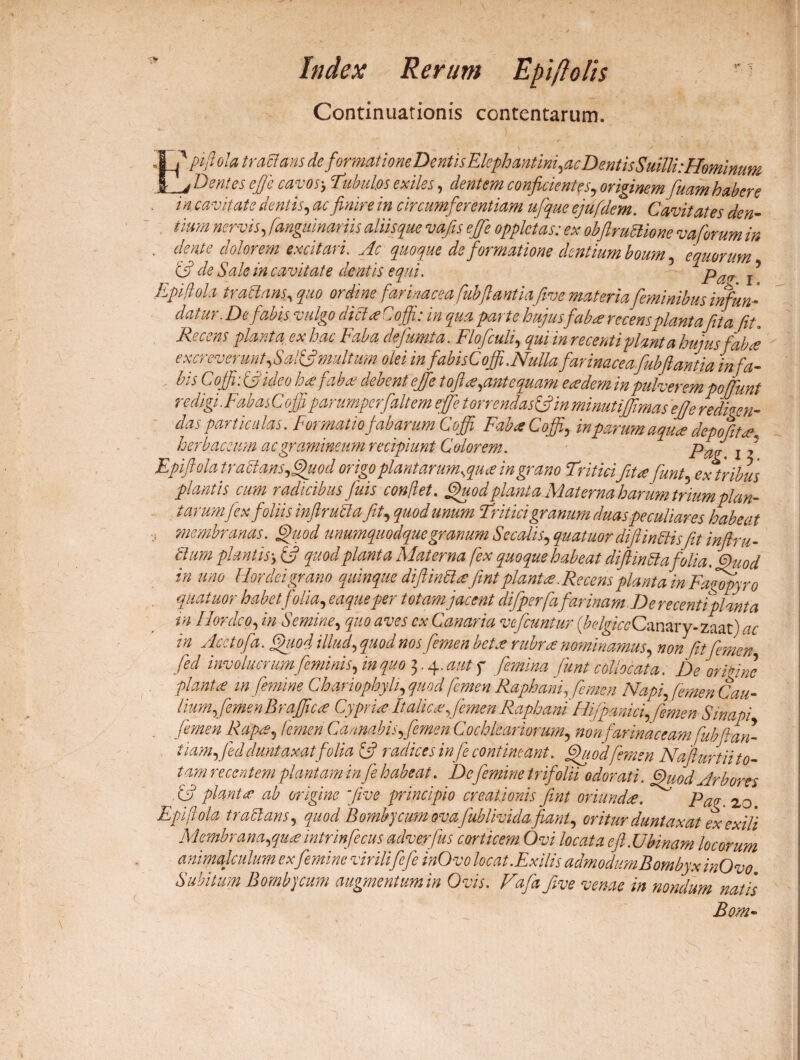 Index Rerum Epiſtolis
Continuationis contentarum.
EPiſtola tractans de formatione Dentis Elephantini, ac Dentis Suilli: Hominum
Dentes eſſe cavos; Tubulos exiles, dentem conficientes, originem ſuam habere
in cavitate dentis, ac finire in circumferentiam uſque ejuſdem. Cavitates den-
tium nervis, ſanguinariis aliisque vaſis eſſe oppletas: ex obſtructione vaſorum in
dente dolorem excitari. Ac quoque de formatione dentium boum, equorum,
& de Sale in cavitate dentis equi. Pag. 1.
Epiſtola tractans, quo ordine farinacea ſubſtantia ſive materia ſeminibus infun-
datur. De fabis vulgo dictæ Coffi: in qua parte hujus fabæ recens planta ſita ſit.
Recens planta ex hac Faba deſumta. Floſculi, qui in recenti planta hujus fabæ
excreverunt, Sal & multum olei in fabis Coffi. Nulla farinacea ſubſtantia in fa-
bis Coffi: & ideo hæ fabæ debent eſſe toſtæ, antequam eædem in pulverem poſſunt
redigi. Fabas Coffi parumper ſaltem eſſe torrendas & in minutiſſimas eſſe redigen-
das particulas. Formatio fabarum Coffi. Fabæ Coffi, in parum aquæ depoſitæ,
herbaceum ac gramineum recipiunt Colorem. Pag. 13.
Epiſtola tractans, Quod origo plantarum, quæ in grano Tritici ſitæ ſunt, ex tribus
plantis cum radicibus ſuis conſtet. Quod planta Materna harum trium plan-
tarum ſex foliis inſtructa ſit, quod unum Tritici granum duas peculiares habeat
membranas. Quod unumquodque granum Secalis, quatuor diſtinctis ſit inſtru-
ctum plantis; & quod planta Materna ſex quoque habeat diſtincta folia. Quod
in uno Hordei grano quinque diſtinctæ ſint plantæ. Recens planta in Fagopyro
quatuor habet folia, eaque per totam jacent diſperſa farinam. De recenti planta
in Hordeo, in Semine, quo aves ex Canaria veſcuntur (belgice Canary-zaat) ac
in Acetoſa. Quod illud, quod nos ſemen betæ rubræ nominamus, non ſit ſemen,
ſed involucrum ſeminis, in quo 3. 4. aut 5 ſemina ſunt collocata. De origine
plantæ in ſemine Chariophyli, quod ſemen Raphani, ſemen Napi, ſemen Cau-
lium, ſemen Braſſicæ Cypriæ Italicæ, ſemen Raphani Hiſpanici, ſemen Sinapi,
ſemen Rapæ, ſemen Cannabis, ſemen Cochleariorum, non farinaceam ſubſtan-
tiam, ſed duntaxat folia & radices in ſe contineant. Quod ſemen Naſturtii to-
tam recentem plantam in ſe habeat. De ſemine trifolii odorati. Quod Arbores
& plantæ ab origine ſive principio creationis ſint oriundæ. Pag. 20.
Epiſtola tractans, quod Bombycum ova ſublivida fiant, oritur duntaxat ex exili
Membrana, quæ intrinſecus adverſus corticem Ovi locata eſt. Ubinam locorum
animalculum ex ſemine virili ſeſe in Ovo locat. Exilis admodum Bombyx in Ovo.
Subitum Bombycum augmentum in Ovis. Vaſa ſive venae in nondum natis
Bom-